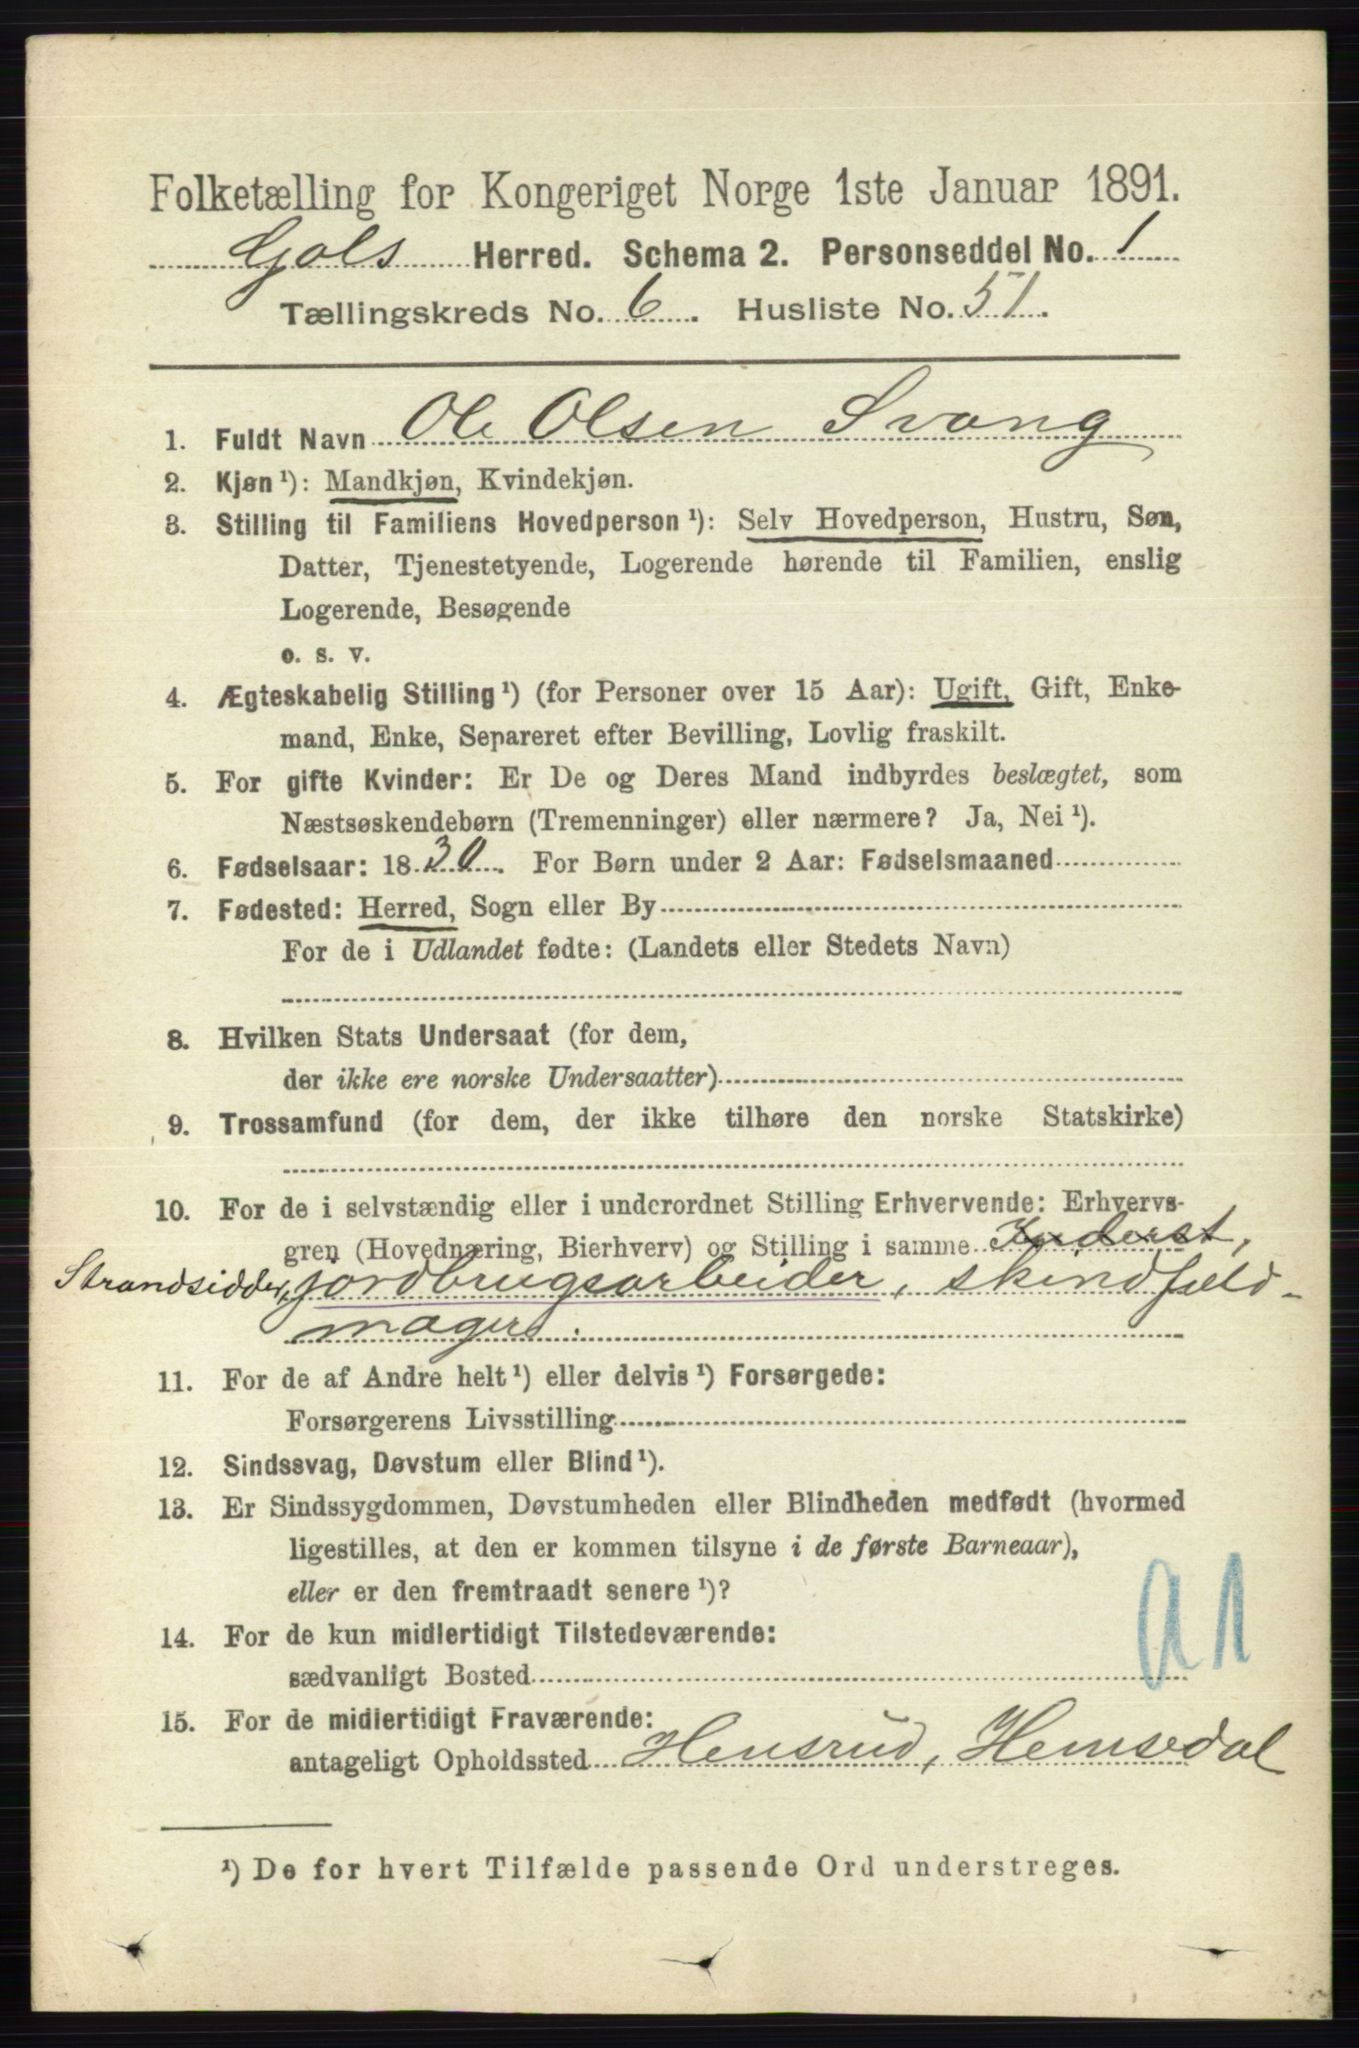 Folketælling for Kongeriget Norge 1ste Januar 1891.
Gols Herred. Schema 2. Personseddel No. 1
Tællingskreds No. 6. Husliste No. 51.
1. Fuldt Navn Ole Olsen Svang
2. Kjøn¹): Mandkjøn, Kvindekjøn.
3. Stilling til Familiens Hovedperson¹): Selv Hovedperson, Hustru, Søn,
Datter, Tjenestetyende, Logerende hørende til Familien, enslig
Logerende, Besøgende
o. s. v.
4. Ægteskabelig Stilling¹) (for Personer over 15 Aar): Ugift, Gift, Enke-
mand, Enke, Separeret efter Bevilling, Lovlig fraskilt.
5. For gifte Kvinder: Er De og Deres Mand indbyrdes beslægtet, som
Næstsøskendebørn (Tremenninger) eller nærmere? Ja, Nei¹).
6. Fødselsaar: 1830. For Børn under 2 Aar: Fødselsmaaned
7. Fødested: Herred, Sogn eller By
For de i Udlandet fødte: (Landets eller Stedets Navn)
8. Hvilken Stats Undersaat (for dem,
der ikke ere norske Undersaatter)
9. Trossamfund (for dem, der ikke tilhøre den norske Statskirke)
10. For de i selvstændig eller i underordnet Stilling Erhvervende: Erhvervs-
gren (Hovednæring, Bierhverv) og Stilling i samme Inderst,
Strandsidder, jordbrugsarbeider, skindfeld-
mager.
11. For de af Andre helt¹) eller delvis¹) Forsørgede:
Forsørgerens Livsstilling
12. Sindssvag, Døvstum eller Blind¹).
13. Er Sindssygdommen, Døvstumheden eller Blindheden medfødt (hvormed
ligestilles, at den er kommen tilsyne i de første Barneaar),
eller er den fremtraadt senere¹)?
14. For de kun midlertidigt Tilstedeværende:
sædvanligt Bosted
a1
15. For de midlertidigt Fraværende:
antageligt Opholdssted Hensrud, Hemsedal
¹) De for hvert Tilfælde passende Ord understreges.